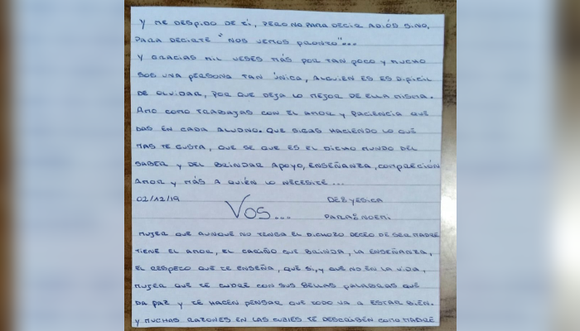 Y ME DESPIDO DE TÍ, PERO NO PARA DECIR ADIÓS SINO,
PARA DECIRTE "NOS VEMOS PRONTO"...
Y GRACIAS MIL VESES MÁS POR TAN POCO Y MUCHO
SOS UNA PERSONA TAN ÚNICA, ALGUIEN ES ES DIFICIL
DE OLVIDAR, POR QUE DEJA LO MEJOR DE ELLA MISMA.
AMO COMO TRABAJAS CON EL AMOR Y PACIENCIA QUE
DAS EN CADA ALUMNO. QUE SIGAS HACIENDO LO QUE
MAS TE GUSTA, QUE SE QUE ES EL DICHO MUNDO DEL
SABER Y DEL BRINDAR APOYO, ENSEÑANZA, COMPRECIÓN
AMOR Y MÁS A QUIÉN LO NECESITE...
02/12/19 DE: YESICA
VOS... PARA: NOEMI.
MUJER QUE AUNQUE NO TENGA EL DICHOZO DECEO DE SER MADRE
TIENE EL AMOR, EL CARIÑO QUE BRINDA, LA ENSEÑANZA,
EL RESPECO QUE TE ENSEÑA, QUE SI, Y QUE NO EN LA VIDA,
MUJER QUE TE CUBRE CON SUS BELLAS PALABRAS QUE
DA PAZ Y TE HACEN PENSAR QUE TODO VA A ESTAR BIEN.
Y MUCHAS RAZONES EN LAS CUALES TE DESCRIBEN COMO MADRE